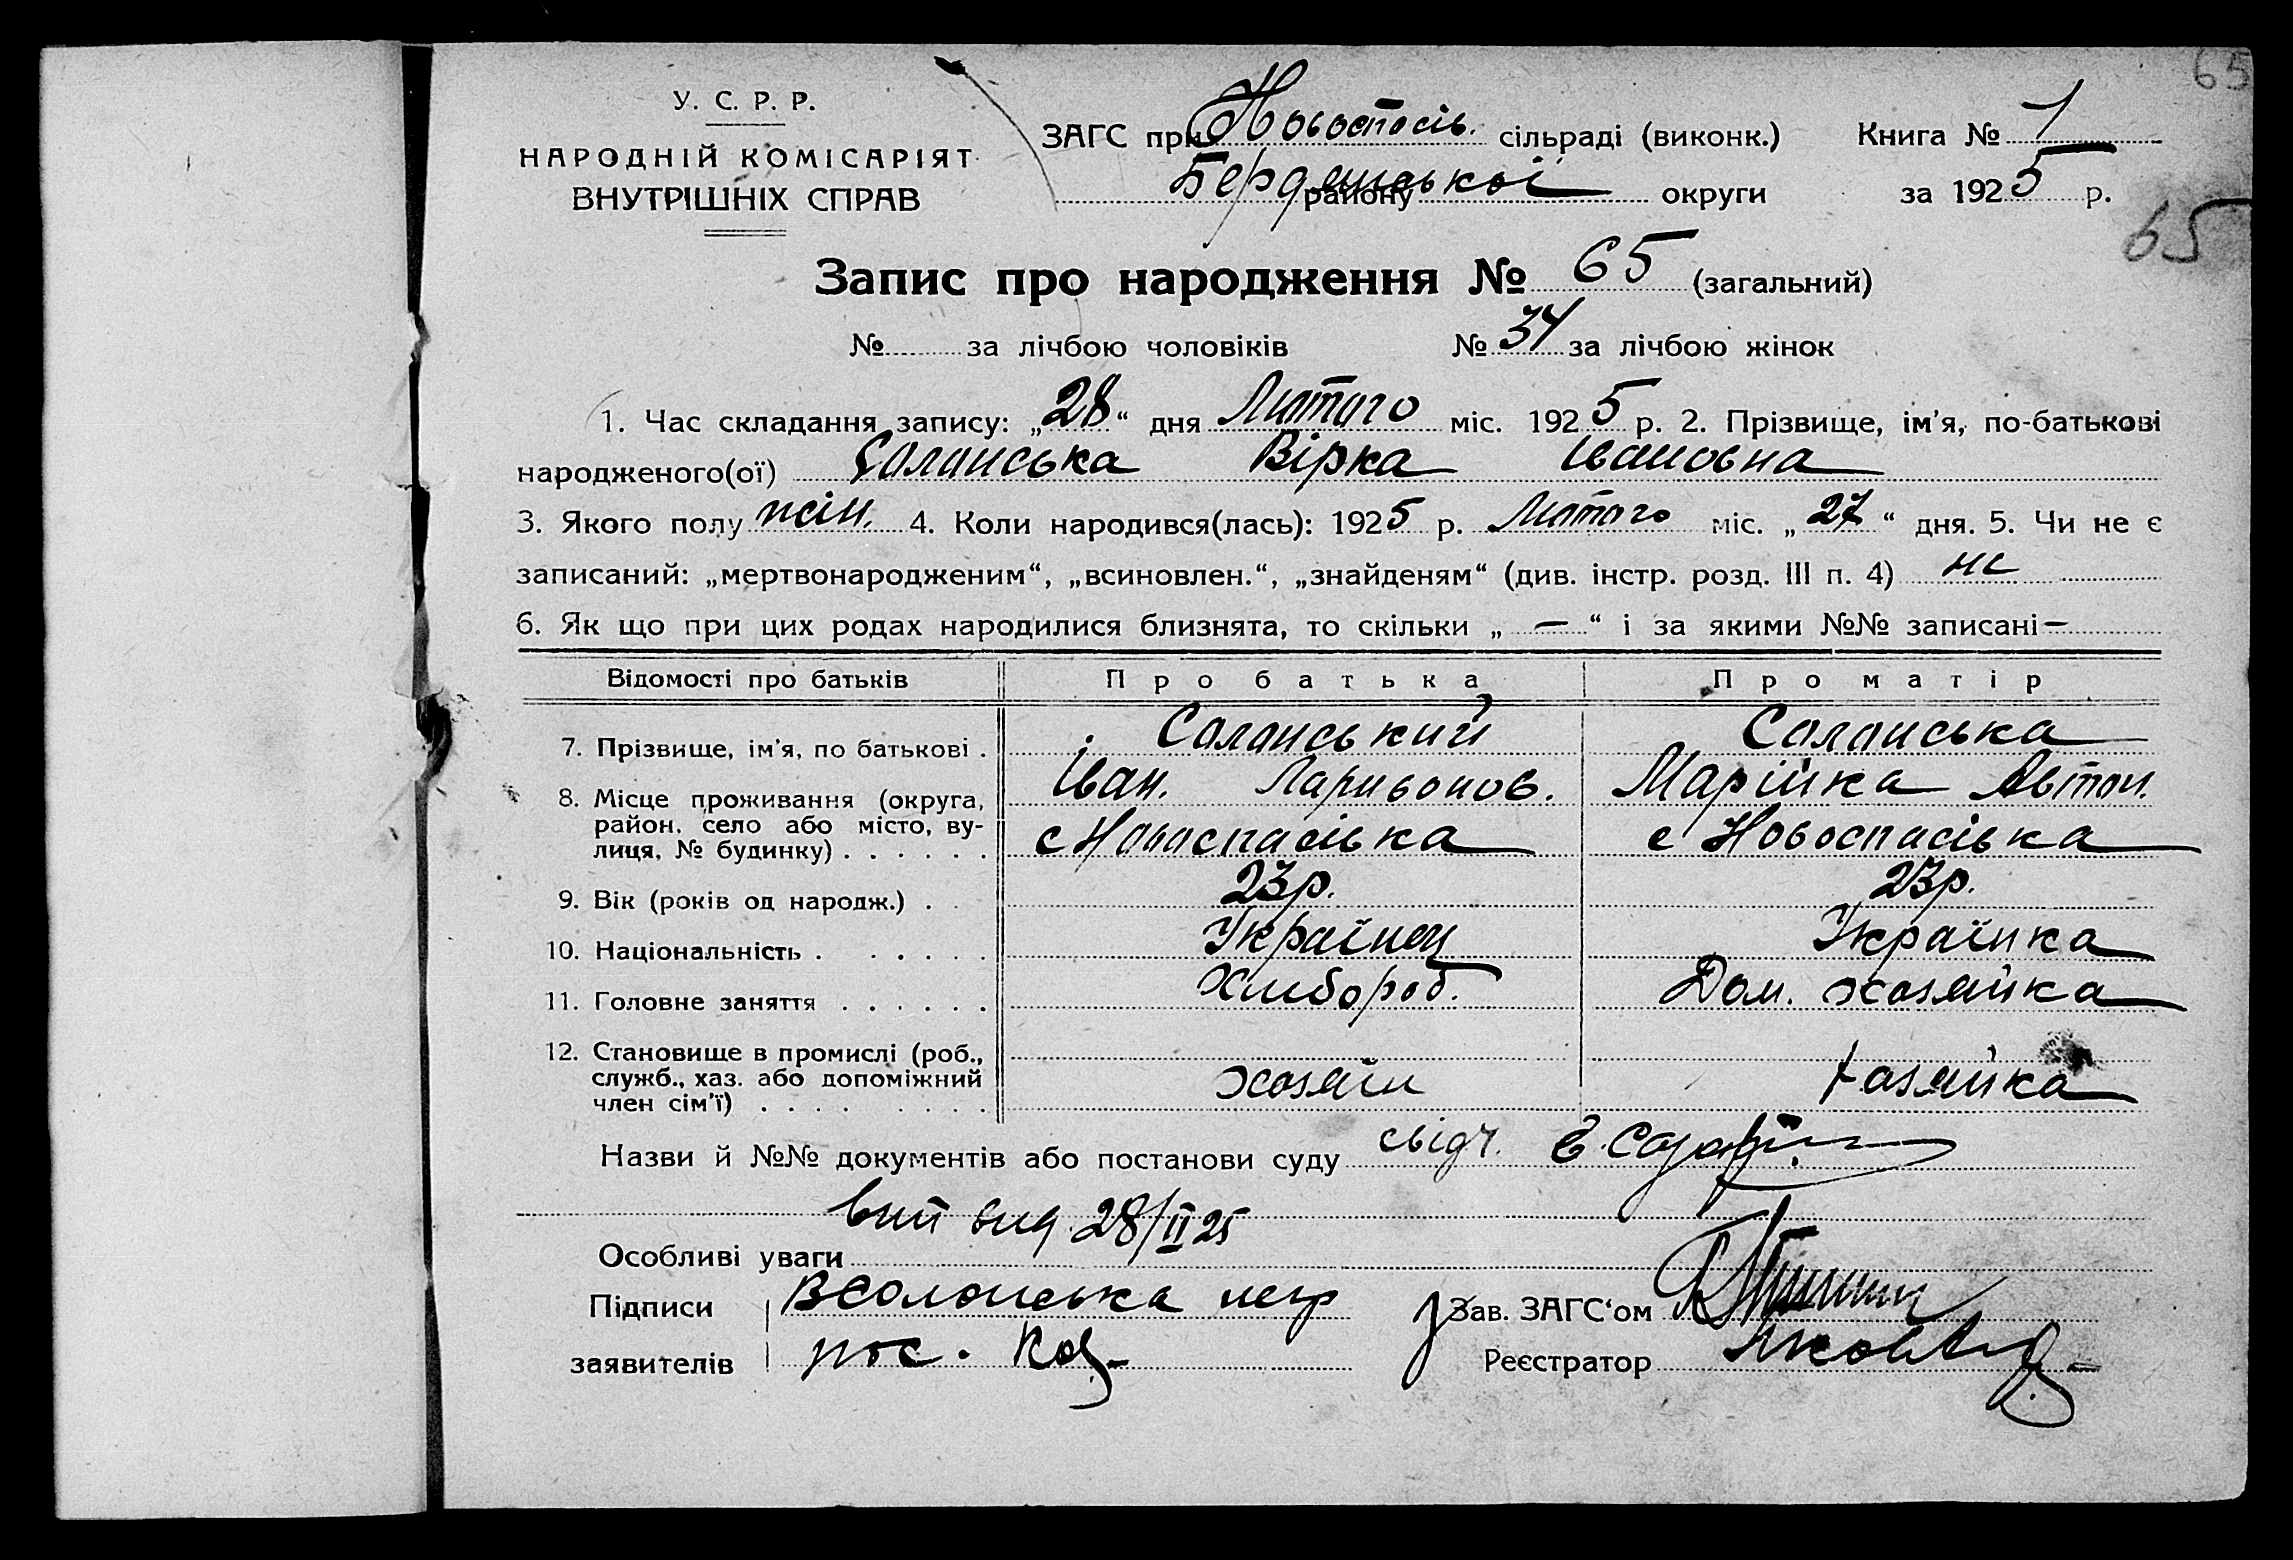 65
У. С. Р. Р.
НАРОДНІЙ КОМІСАРІЯТ
ВНУТРІШНІХ СПРАВ
ЗАГС при Новоспасів. сільраді (виконк.) Книга № 1
Бердянської району округи за 1925 р.
65
Запис про народження № 65 (загальний)
№ за лічбою чоловіків № 34 за лічбою жінок
1. Час складання запису: „28“ дня Лютого міс. 1925 р. 2. Прізвище, ім'я, по-батькові
народженого(ої) Соланська Вірка Івановна
3. Якого полу жін. 4. Коли народився(лась): 1925 р. Лютого міс. „27“ дня. 5. Чи не є
записаний: „мертвонародженим“, „всиновлен.“, „знайденям“ (див. інстр. розд. III п. 4) не
6. Як що при цих родах народилися близнята, то скільки „ — “ і за якими №№ записані —
Відомості про батьків Про батька Про матір
7. Прізвище, ім'я, по батькові . Соланський Соланська
Іван. Ларивонов. Марійка Автон.
8. Місце проживання (округа, район, село або місто, вулиця, № будинку) . . . . . . с Новоспасівка с Новоспасівка
9. Вік (років од народж.) . . 23р. 23р.
10. Національність . . . . . . Українец Українка
11. Головне заняття . . . . . . Хлибороб. Дом. хозяйка
12. Становище в промислі (роб., служб., хаз. або допоміжний член сім'ї) . . . . . . . . хозяін хозяйка
Назви й №№ документів або постанови суду свідч.
вип вид 28/II 25
Особливі уваги
Підписи Зав. ЗАГС‘ом
заявителів Реєстратор